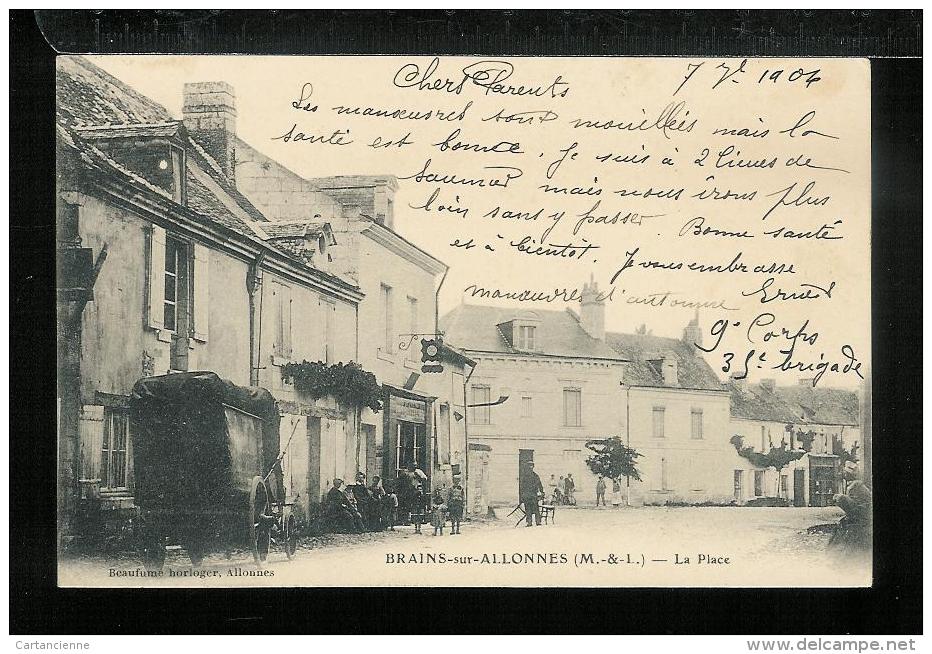 7 7re 1904
Chers Parents
Les manœuvres sont mouillées mais la
santé est bonne. Je suis à 2 lieues de
Saumur mais nous n'irons plus
loin sans y passer. Bonne santé
et à bientôt. Je vous embrasse
Ernest
manœuvres d'automne
9e Corps
35e brigade
BRAINS-sur-ALLONNES (M.-&-L.) — La Place
Beaufume horloger, Allonnes
Cartancienne
http://www.delcampe.net